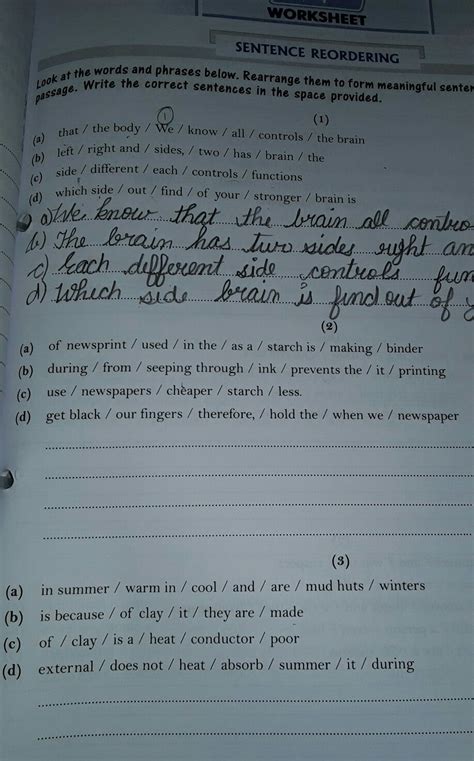 WORKSHEET
SENTENCE REORDERING
Look at the words and phrases below. Rearrange them to form meaningful
passage. Write the correct sentences in the space provided.
(1)
1
(a) that / the body / We / know / all / controls / the brain
(b) left / right and / sides, / two / has / brain / the
(c) side / different / each / controls / functions
(d) which side / out / find / of your / stronger / brain is
a) We know that the brain all contro
b) The brain has two sides right an
c) Each different side controls fun
d) Which side brain is find out of y
(2)
(a) of newsprint / used / in the / as a / starch is / making / binder
(b) during / from / seeping through / ink / prevents the / it / printing
(c) use / newspapers / cheaper / starch / less.
(d) get black / our fingers / therefore, / hold the / when we / newspaper
(3)
(a) in summer / warm in / cool / and / are / mud huts / winters
(b) is because / of clay / it / they are / made
(c) of / clay / is a / heat / conductor / poor
(d) external / does not / heat / absorb / summer / it / during